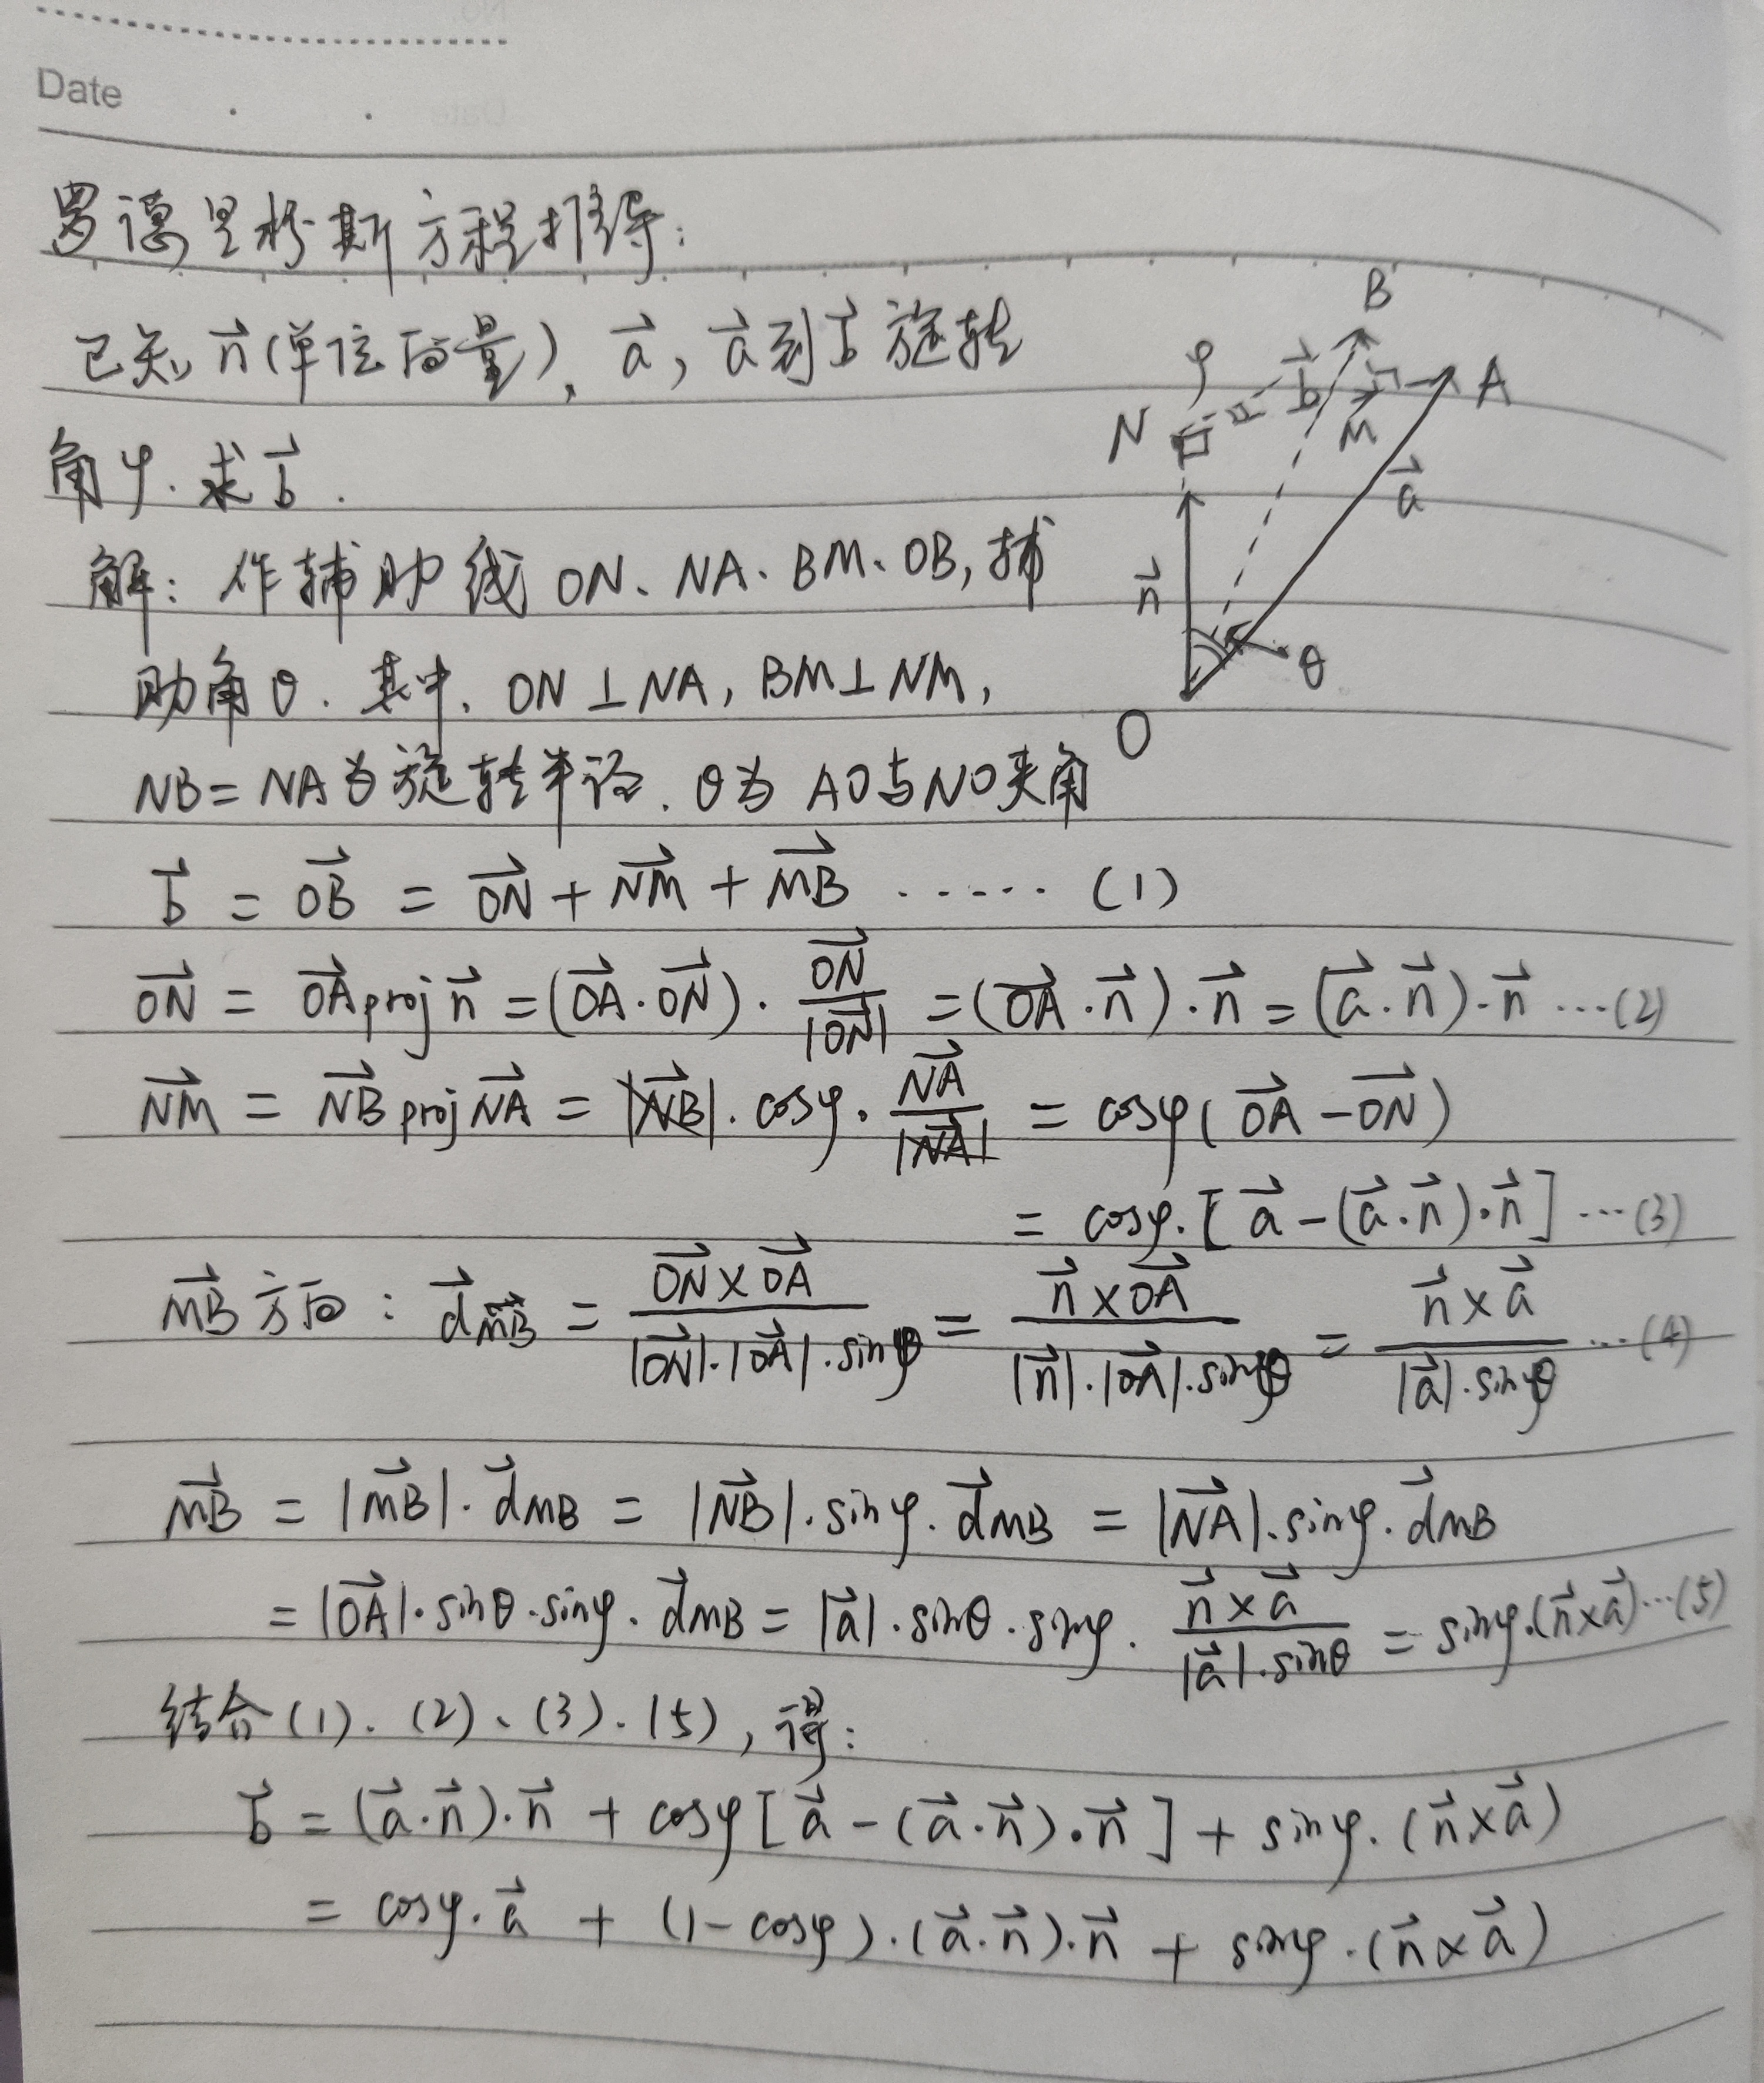 Date
罗德里格斯方程推导:
已知 n⃗(单位向量), a⃗, a⃗到b⃗旋转
角φ. 求b⃗.
解: 作辅助线 ON、NA、BM、OB, 辅
助角θ. 其中, ON⊥NA, BM⊥NM,
NB=NA为旋转半径. θ为AO与NO夹角
B
φ
b⃗
A
N
M
a⃗
n⃗
θ
O
b⃗ = OB⃗ = ON⃗ + NM⃗ + MB⃗ ······ (1)
ON⃗ = OA⃗ proj n⃗ = (OA⃗·ON⃗)· ON⃗/|ON⃗| = (OA⃗·n⃗)·n⃗ = (a⃗·n⃗)·n⃗ ···(2)
NM⃗ = NB⃗ proj NA⃗ = |NB⃗|·cosφ· NA⃗/|NA⃗| = cosφ(OA⃗ - ON⃗)
= cosφ·[a⃗ - (a⃗·n⃗)·n⃗] ···(3)
MB⃗ 方向: d⃗MB⃗ = ON⃗×OA⃗/|ON⃗|·|OA⃗|·sinθ = n⃗×OA⃗/|n⃗|·|OA⃗|·sinθ = n⃗×a⃗/|a⃗|·sinθ ···(4)
MB⃗ = |MB⃗|·d⃗MB = |NB⃗|·sinφ·d⃗MB = |NA⃗|·sinφ·d⃗MB
= |OA⃗|·sinθ·sinφ·d⃗MB = |a⃗|·sinθ·sinφ· n⃗×a⃗/|a⃗|·sinθ = sinφ·(n⃗×a⃗) ···(5)
结合(1)、(2)、(3)、(5), 得:
b⃗ = (a⃗·n⃗)·n⃗ + cosφ[a⃗ - (a⃗·n⃗)·n⃗] + sinφ·(n⃗×a⃗)
= cosφ·a⃗ + (1-cosφ)·(a⃗·n⃗)·n⃗ + sinφ·(n⃗×a⃗)